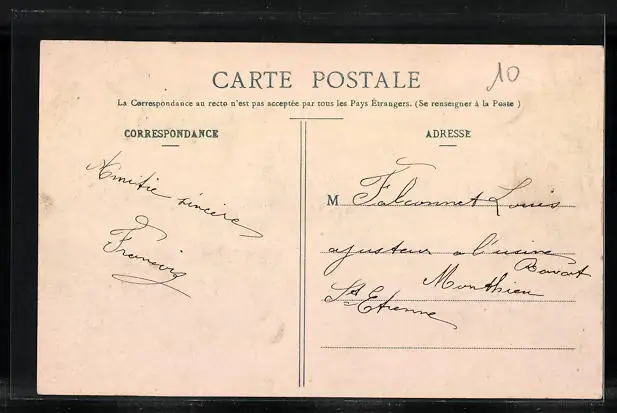 CARTE POSTALE
10
La Correspondance au recto n'est pas acceptée par tous les Pays Étrangers. (Se renseigner à la Poste )
CORRESPONDANCE
Amitie sincère
ADRESSE
M Falconnet Louis
ajusteur a l'usine
Bavat
Monthieu
St Etienne